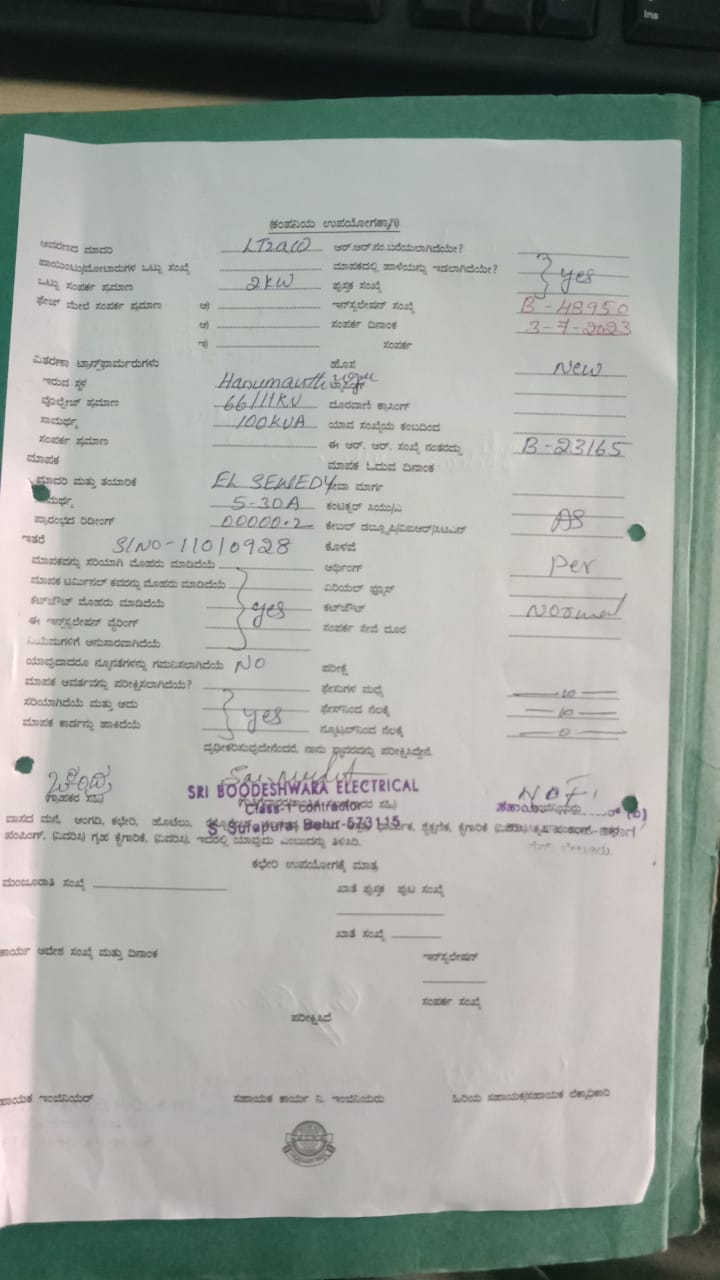 Ins
(ಕಂಪನಿಯ ಉಪಯೋಗಕ್ಕಾಗಿ)
ಆವರಣದ ಮಾದರಿ LT2a(i) ಆರ್.ಆರ್.ನಂ.ಬರೆಯಲಾಗಿದೆಯೇ?
ಪಾಯಿಂಟು/ಮೋಟಾರುಗಳ ಒಟ್ಟು ಸಂಖ್ಯೆ ಮಾಪಕದಲ್ಲಿ ಹಾಳೆಯನ್ನು ಇಡಲಾಗಿದೆಯೇ? yes
ಒಟ್ಟು ಸಂಪರ್ಕ ಪ್ರಮಾಣ 2KW ಪುಸ್ತಕ ಸಂಖ್ಯೆ
ಫೇಜ್ ಮೇಲೆ ಸಂಪರ್ಕ ಪ್ರಮಾಣ ಅ) ಇನ್‌ಸ್ಟಲೇಷನ್ ಸಂಖ್ಯೆ B-48950
ಆ) ಸಂಪರ್ಕ ದಿನಾಂಕ 3-7-2023
ಇ) ಸಂಪರ್ಕ
ವಿತರಣಾ ಟ್ರಾನ್ಸ್‌ಫಾರ್ಮರುಗಳು ಹೊಸ New
ಇರುವ ಸ್ಥಳ
ವೋಲ್ಟೇಜ್ ಪ್ರಮಾಣ 66/11KV ದೂರವಾಣಿ ಕ್ರಾಸಿಂಗ್
ಸಾಮರ್ಥ್ಯ 100KVA ಯಾವ ಸಂಖ್ಯೆಯ ಕಂಬದಿಂದ
ಸಂಪರ್ಕ ಪ್ರಮಾಣ ಈ ಆರ್. ಆರ್. ಸಂಖ್ಯೆ ನಂತರದ್ದು B-23165
ಮಾಪಕ ಮಾಪಕ ಓದುವ ದಿನಾಂಕ
ಮಾದರಿ ಮತ್ತು ತಯಾರಿಕೆ EL SEWEDY ಸೇವಾ ಮಾರ್ಗ
5-30A
ಪ್ರಾರಂಭದ ರಿಡಿಂಗ್ 00000.2 ಕೇಬಲ್ AS
ಇತರೆ SLNO-11010928 ಕೊಳವೆ
ಮಾಪಕವನ್ನು ಸರಿಯಾಗಿ ಮೊಹರು ಮಾಡಿದೆಯೆ ಅರ್ಥಿಂಗ್ Per
ಮಾಪಕ ಟರ್ಮಿನಲ್ ಕವರನ್ನು ಮೊಹರು ಮಾಡಿದೆಯೆ ಏರಿಯಲ್ ಫ್ಯೂಸ್
ಕಟ್‌ಔಟ್ ಮೊಹರು ಮಾಡಿದೆಯೆ yes ಕಟ್‌ಔಟ್ Normal
ಈ ಇನ್‌ಸ್ಟಲೇಷನ್ ವೈರಿಂಗ್ ಸಂಪರ್ಕ ಸೇವೆ ದೂರ
ನಿಯಮಗಳಿಗೆ ಅನುಸಾರವಾಗಿದೆಯೆ
ಯಾವುದಾದರೂ ನ್ಯೂನತೆಗಳನ್ನು ಗಮನಿಸಲಾಗಿದೆಯೆ NO ಪರೀಕ್ಷೆ
ಮಾಪಕ ಆವರ್ತವನ್ನು ಪರೀಕ್ಷಿಸಲಾಗಿದೆಯೆ? ಫೇಸುಗಳ ಮಧ್ಯೆ
ಸರಿಯಾಗಿದೆಯೆ ಮತ್ತು ಅದು yes ಫೇಸ್‌ನಿಂದ ನೆಲಕ್ಕೆ
ಮಾಪಕ ಕಾರ್ಡನ್ನು ಹಾಕಿದೆಯೆ ನ್ಯೂಟ್ರಲ್‌ನಿಂದ ನೆಲಕ್ಕೆ
ದೃಢೀಕರಿಸುವುದೇನೆಂದರೆ, ನಾನು ಸ್ಥಾವರವನ್ನು ಪರೀಕ್ಷಿಸಿದ್ದೇನೆ.
(ಗ್ರಾಹಕರ ಸಹಿ)
SRI BOODESHWARA ELECTRICAL
Class-1 contractor
ವಾಸದ ಮನೆ, ಅಂಗಡಿ, ಕಛೇರಿ, ಹೋಟೆಲು, 573115
ಪಂಪಿಂಗ್, (ವಿವರಿಸಿ) ಗೃಹ ಕೈಗಾರಿಕೆ, (ವಿವರಿಸಿ), ಇದರಲ್ಲಿ ಯಾವುದು ಎಂಬುದನ್ನು ತಿಳಿಸಿರಿ.
ಕಛೇರಿ ಉಪಯೋಗಕ್ಕೆ ಮಾತ್ರ
ಮಂಜೂರಾತಿ ಸಂಖ್ಯೆ ಖಾತೆ ಪುಸ್ತಕ ಪುಟ ಸಂಖ್ಯೆ
ಖಾತೆ ಸಂಖ್ಯೆ
ಕಾರ್ಯ ಆದೇಶ ಸಂಖ್ಯೆ ಮತ್ತು ದಿನಾಂಕ ಇನ್‌ಸ್ಟಲೇಷನ್
ಸಂಪರ್ಕ ಸಂಖ್ಯೆ
ಪರೀಕ್ಷಿಸಿದೆ
ಇಂಜಿನಿಯರ್ ಸಹಾಯಕ ಕಾರ್ಯ ನಿ. ಇಂಜಿನಿಯರು ಹಿರಿಯ ಸಹಾಯಕ/ಸಹಾಯಕ ಲೆಕ್ಕಾಧಿಕಾರಿ